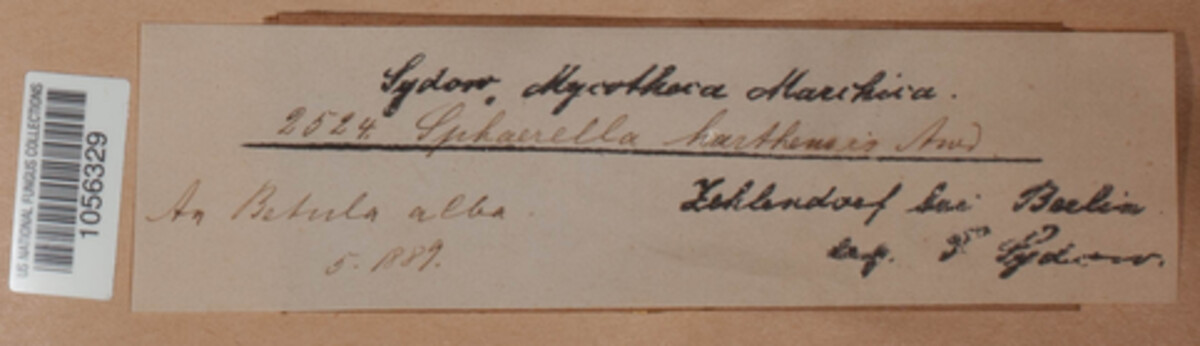 US NATIONAL FUNGUS COLLECTIONS
1056329
Sydow, Mycotheca Marchica.
2524. Sphaerella harthensis Awd.
An Betula alba.
5. 1889.
Zehlendorf bei Berlin
leg. P. Sydow.